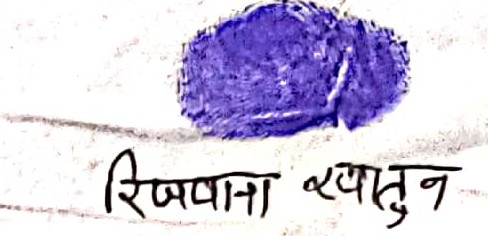 रिजवाना खातुन